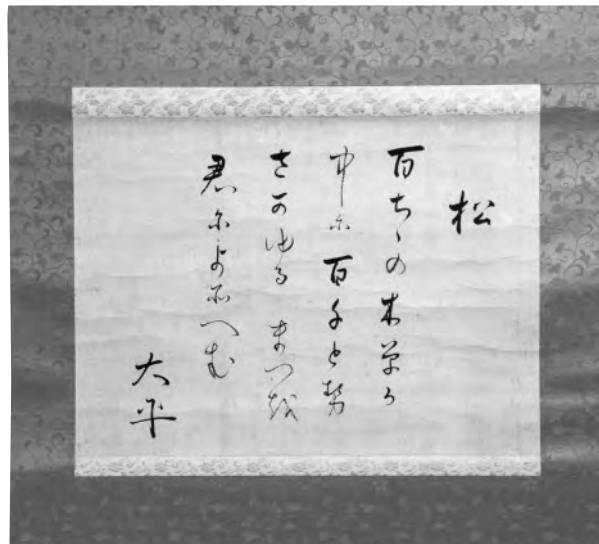 松
百ちゝの木草の
中に百千とせ
さかゆるまつを
君によそへむ
大平